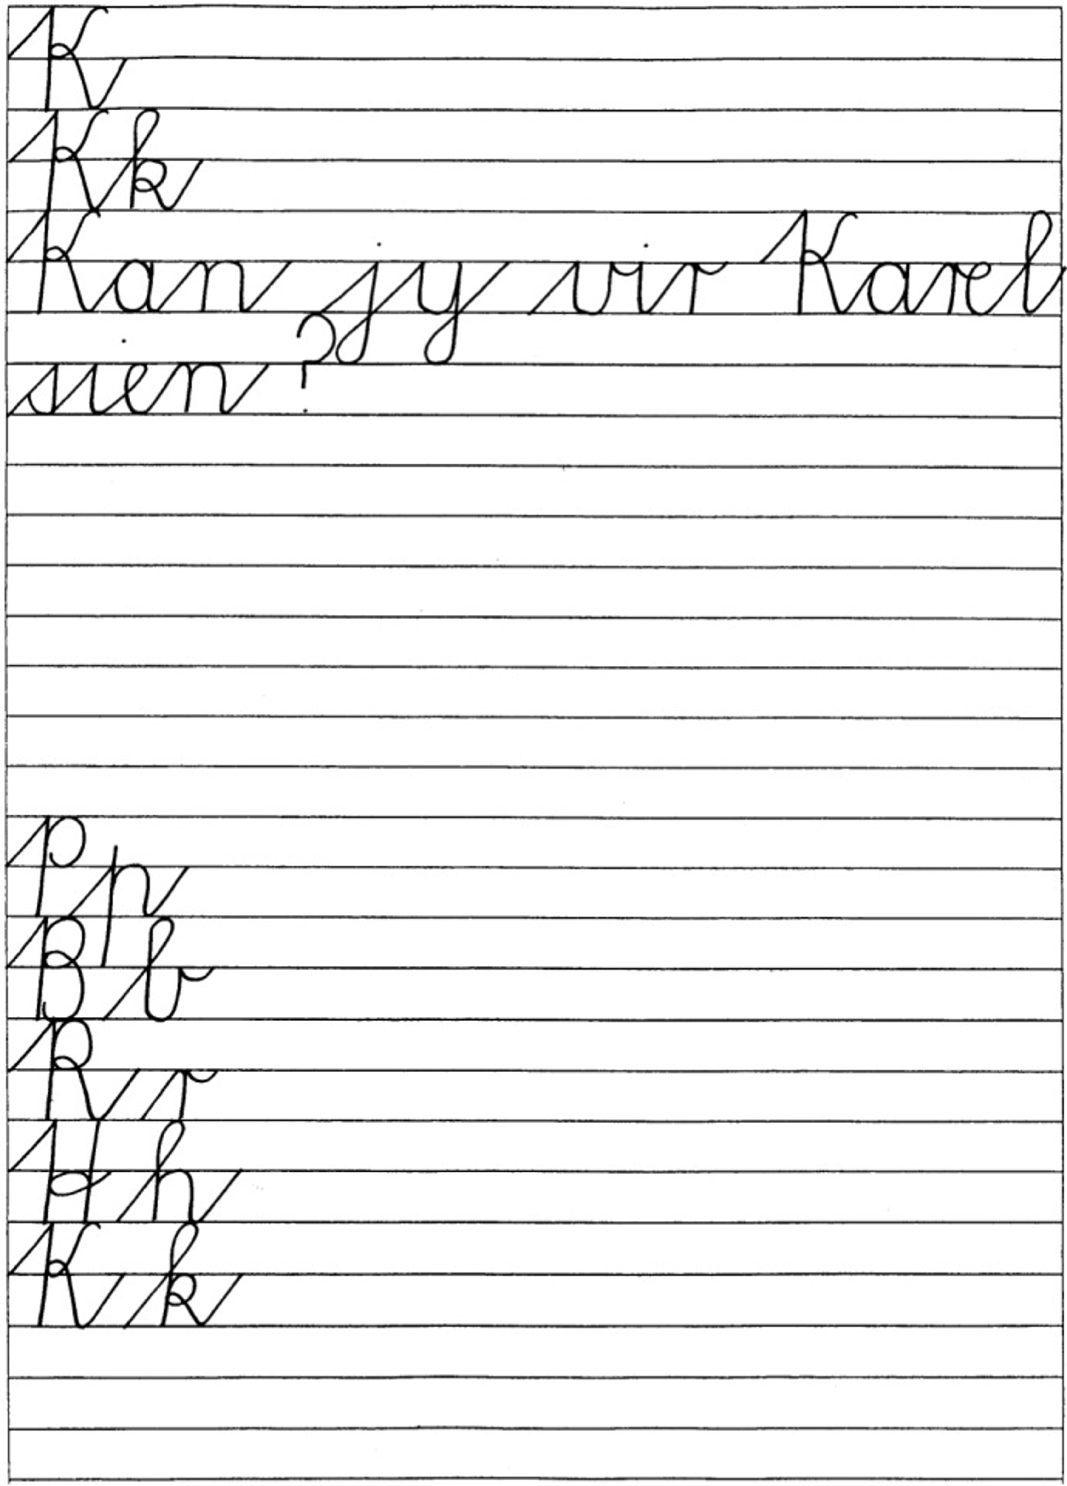 K
Kk
Kan jy vir Karel
sien?
Pp
B b
R r
H h
K k